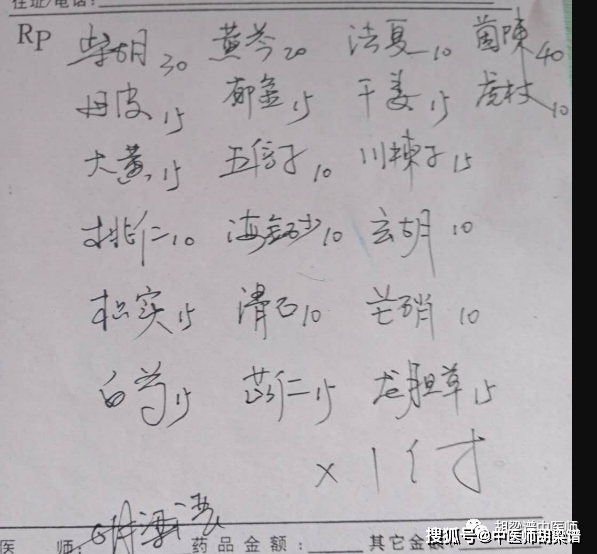 住址/电话:
Rp 柴胡30 黄芩20 法夏10 茵陳40
丹皮15 郁金15 干姜15 虎杖10
大黄15 五倍子10 川楝子15
桃仁10 海金砂10 玄胡10
枳实15 滑石10 芒硝10
白芍15 苡仁15 龙胆草15
×1付
胡梁谱中医师
医 师: 药品金额: 其它金额
搜狐号@中医师胡梁谱